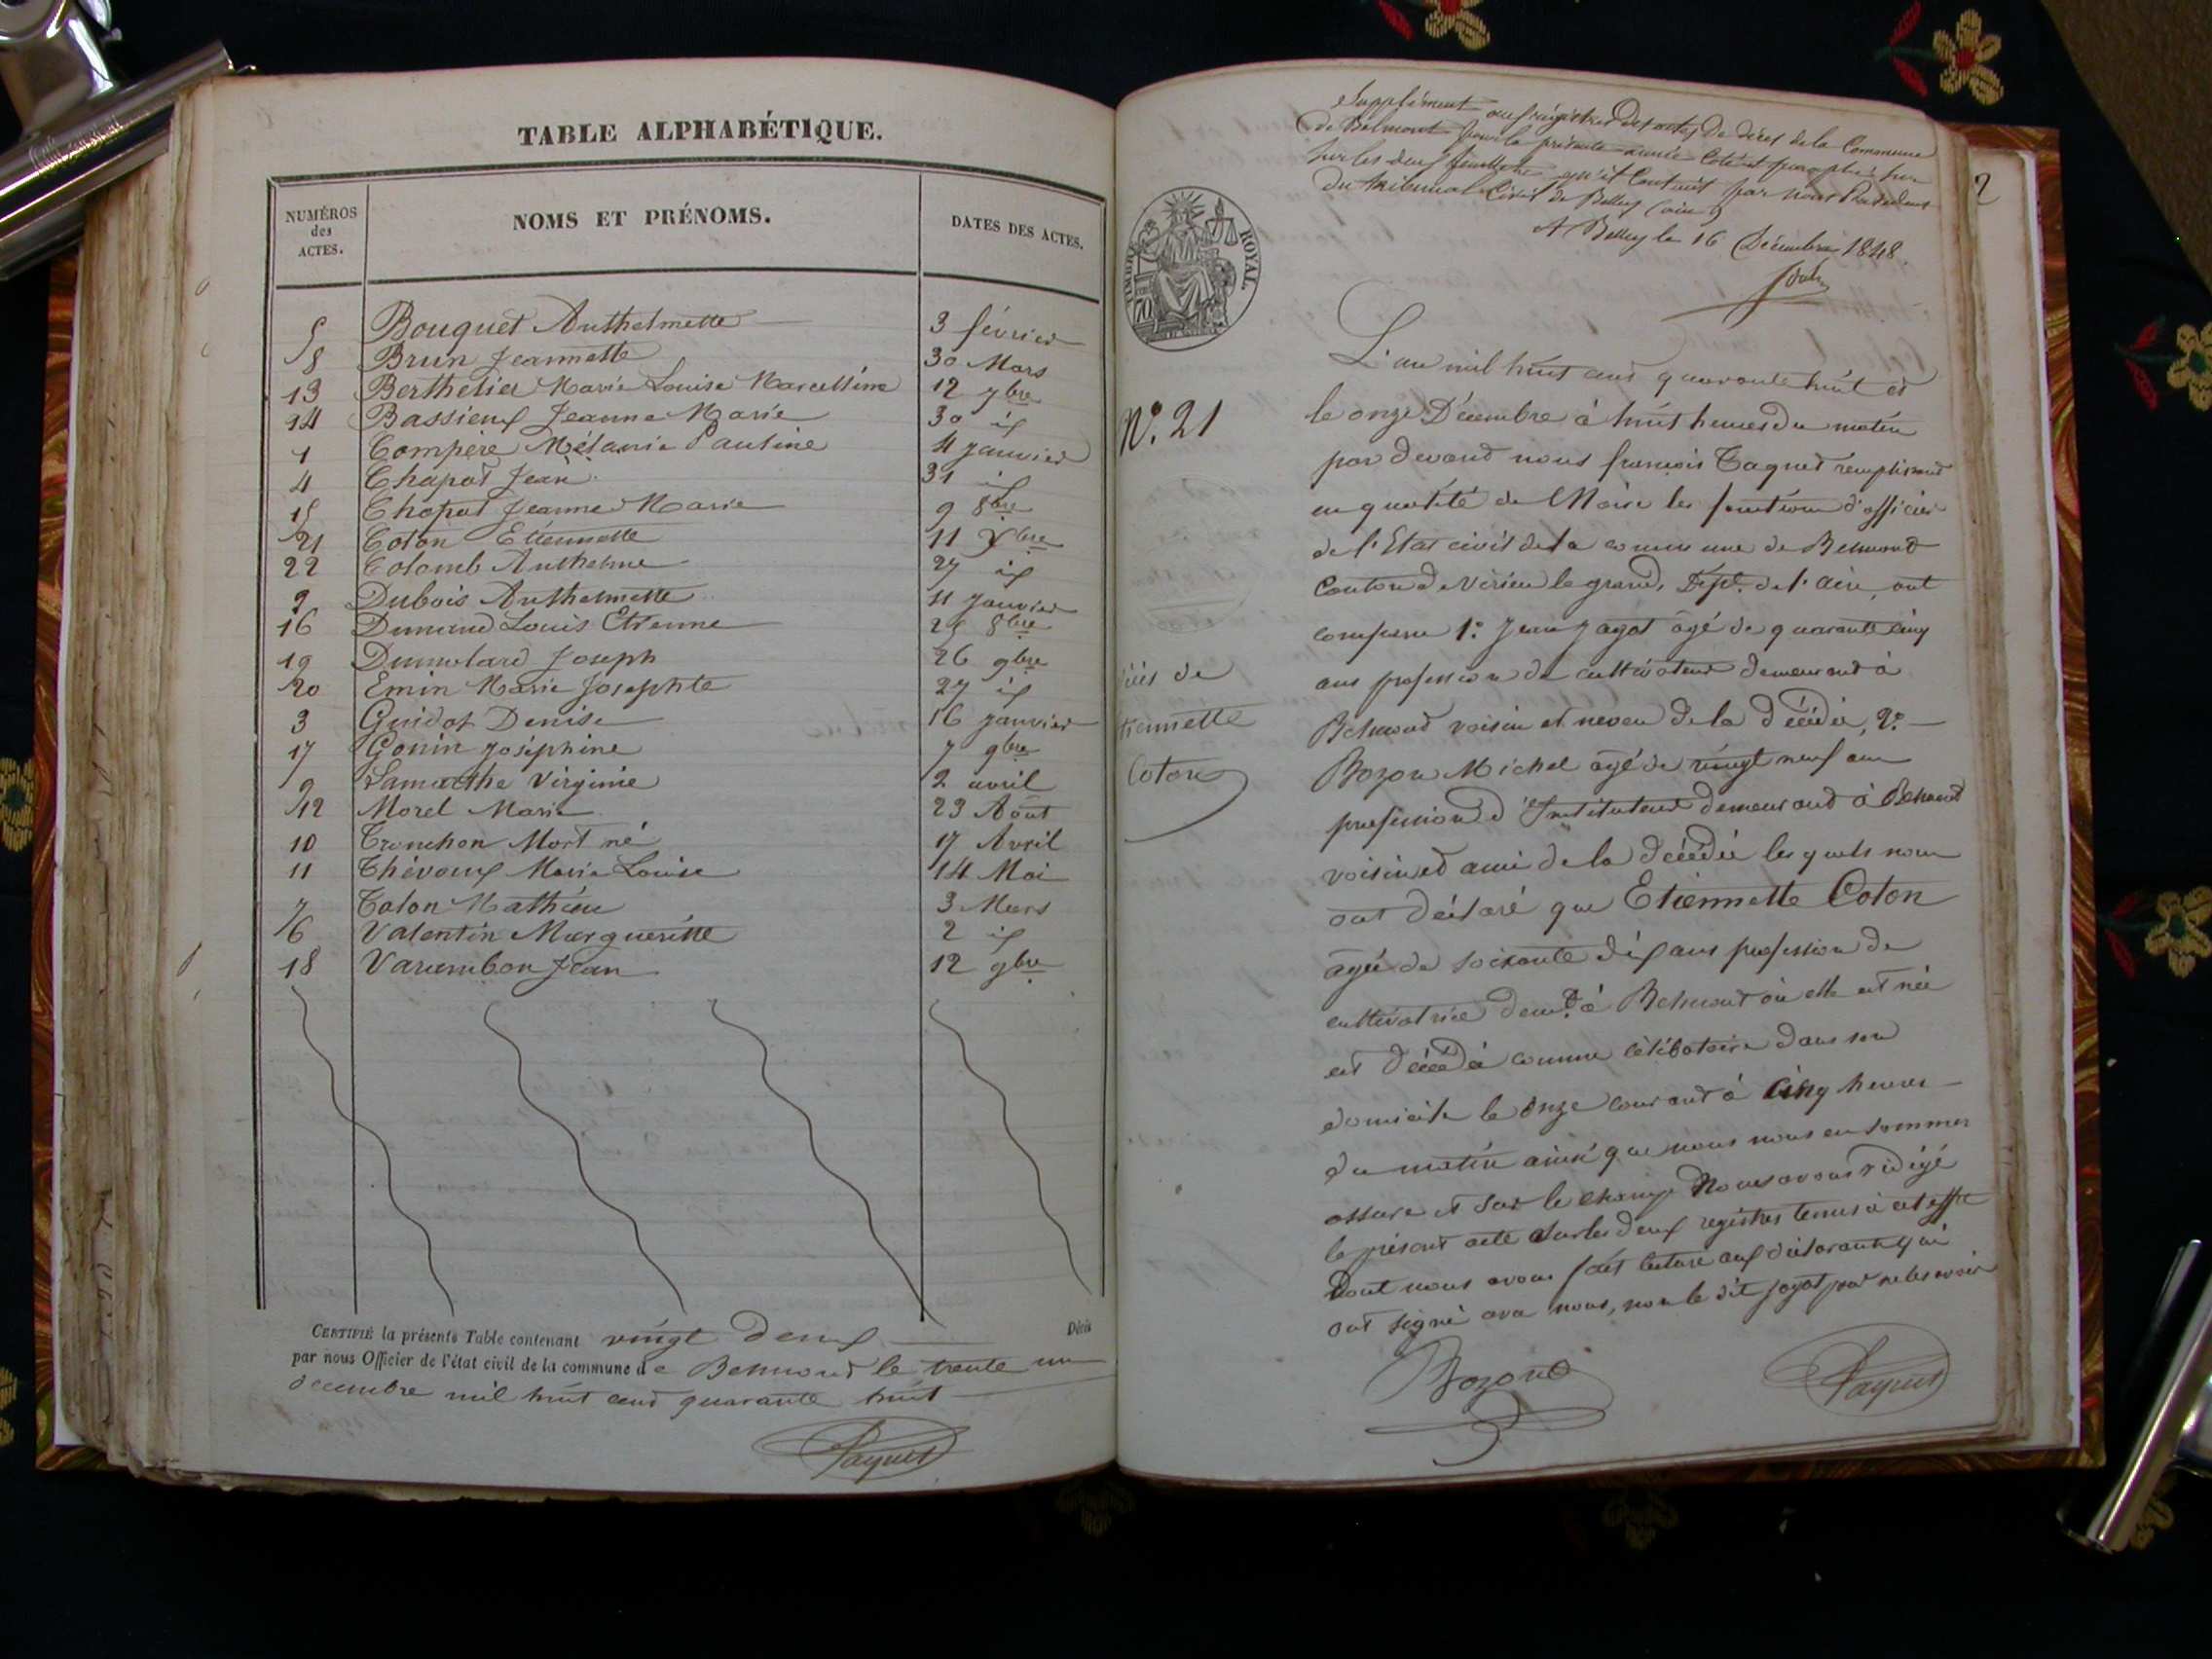 TABLE ALPHABÉTIQUE.
NUMÉROS des ACTES. NOMS ET PRÉNOMS. DATES DES ACTES.
5 Bouquet Anthelmette 3 février
8 Brun Jeannette 30 Mars
13 Berthelier Marie Louise Marcelline 12 7bre
14 Bassieux Jeanne Marie 30 id
1 Compère Mélanie Pauline 4 Janvier
4 Chapot Jean 31 id
15 Chapot Jeanne Marie 9 8bre
21 Coton Etiennette 11 Xbre
22 Colomb Anthelme 27 id
2 Dubois Anthelmette 11 Janvier
16 Dunand Louis Etienne 25 8bre
19 Dumolard Joseph 26 9bre
20 Emin Marie Josephte 27 id
3 Guidot Denise 16 Janvier
17 Gonin Joséphine 7 9bre
9 Lamarthe Virginie 2 avril
12 Morel Marie 23 Août
10 Tronchon Mort né 17 Avril
11 Thévoux Marie Louise 14 Mai
7 Talon Mathieu 3 Mars
6 Valentin Margueritte 2 id
18 Varambon Jean 12 9bre
CERTIFIÉ la présente Table contenant vingt deux Décès
par nous Officier de l'état civil de la commune de Belmont le trente un
décembre mil huit cent quarante huit
Supplément aux régistres des actes de décès de la Commune
de Belmont pour la présente année Coté et paraphé sur
sur les deux feuillets qu'il contient par nous Président
du tribunal Civil de Belley (ain)
A Belley le 16 Décembre 1848.
2
TIMBRE ROYAL
70
N°. 21
L'an mil huit cent quarante huit et
le onze Décembre à huit heures du matin
par devant nous françois Paquet remplissant
en qualité de Maire les fonctions d'officier
de l'Etat civil de la commune de Belmont
Canton de Virieu le grand, Dépt. de l'ain, ont
comparu 1° Jean Jagot âgé de quarante cinq
ans profession de cultivateur demeurant à
Belmont voisin et neveu de la décédée, 2°
Bozon Michel âgé de vingt neuf ans
profession d'Instituteur demeurant à Belmont
voisin et ami de la décédée lesquels nous
ont déclaré que Etiennette Coton
agée de soixante dix ans profession de
cultivatrice demt. à Belmont où elle est née
est décédée comme célibataire dans son
domicile le onze courant à cinq heures
du matin ainsi que nous nous en sommes
assuré et sur le champ Nous avons rédigé
le présent acte sur les deux registres tenus à cet effet
Dont nous avons fait lecture aux déclarants qui
ont signé avec nous, non le dit Jagot pour ne le savoir
cès de
tiennette
Coton
Bozon
Paquet
Paquet